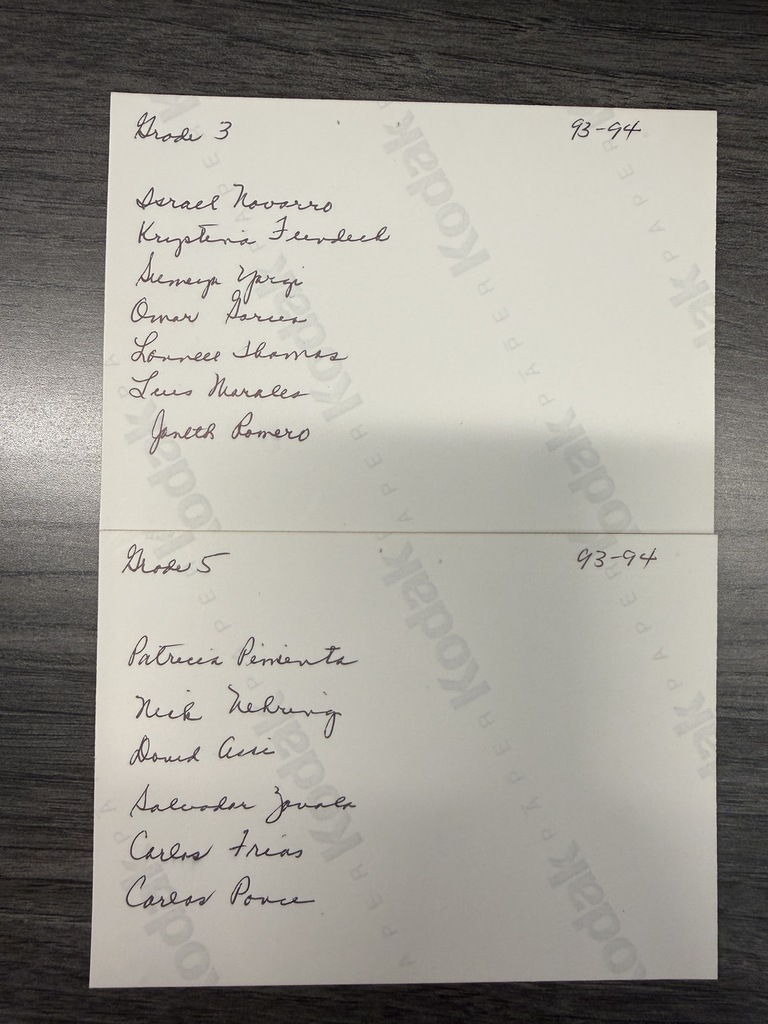 Grade 3 93-94
Israel Navarro
Krystina
Sumeya Yargi
Omar Garcia
Lonnell Thomas
Luis Morales
Janeth Romero
Grade 5 93-94
Patricia Pimienta
Nick Nehring
David Assi
Salvador Zavala
Carlos Frias
Carlos Ponce
Kodak PAPER